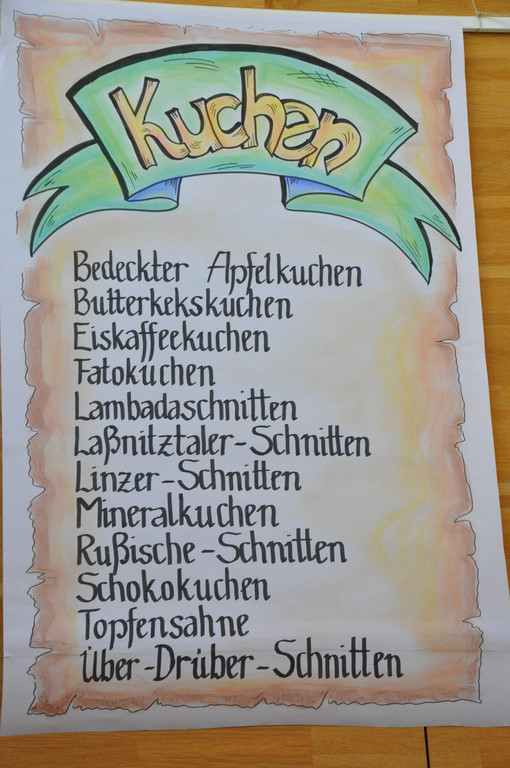 Kuchen
Bedeckter Apfelkuchen
Butterkekskuchen
Eiskaffeekuchen
Fatokuchen
Lambadaschnitten
Laßnitztaler-Schnitten
Linzer-Schnitten
Mineralkuchen
Rußische-Schnitten
Schokokuchen
Topfensahne
Über-Drüber-Schnitten